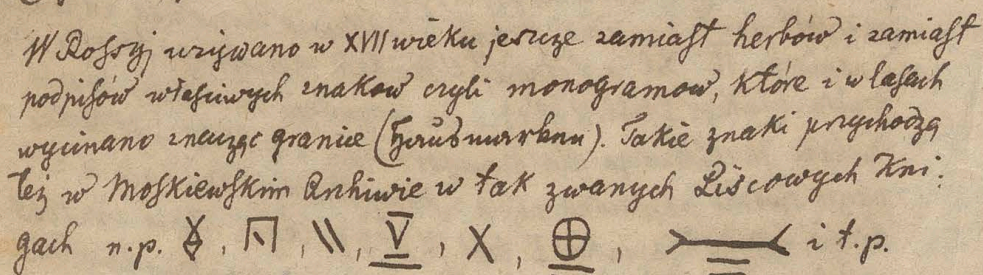 W Rossyj używano w XVII wieku jeszcze zamiast herbów i zamiast
podpisów właściwych znakow czyli monogramow, które i w lasach
wycinano znacząc granice (Hausmarken). Takie znaki przychodzą
też w Moskiewskim Archiwie w tak zwanych Liścowych Kni:
gach n.p. , , , , X, , i t.p.